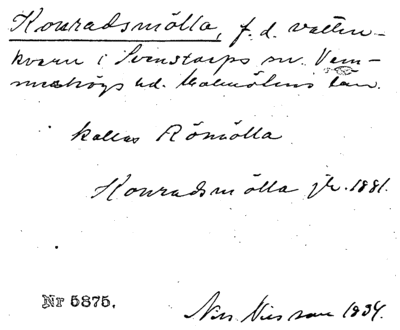 Konradsmölla, f. d. vatten-
kvarn i Svenstorps sn. Vem-
menhögs hd. Malmöhus län.
kallas Römölla
Konradsmölla jk. 1881.
Nr 5875.
Nils Nilsson 1934.